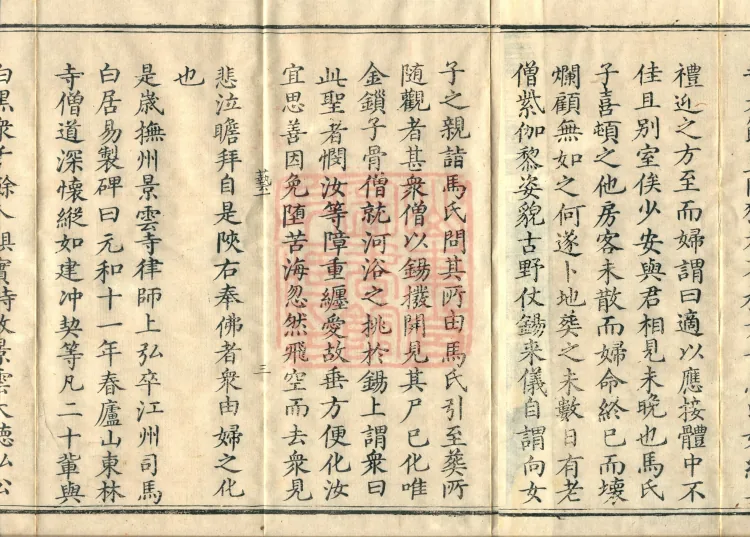 禮迎之方至而婦謂曰適以應接體中不
佳且別室俟少安與君相見未晚也馬氏
子喜頓之他房客未散而婦命終已而壞
爛顧無如之何遂卜地葬之未數日有老
僧紫伽黎姿貌古野仗錫来儀自謂向女
子之親詣馬氏問其所由馬氏引至葬所
隨觀者甚衆僧以錫撥開見其尸已化唯
金鎖子骨僧就河浴之挑於錫上謂衆曰
此聖者憫汝等障重纏愛故垂方便化汝
宜思善因免墮苦海忽然飛空而去衆見
藝一 三
悲泣瞻拜自是陝右奉佛者衆由婦之化
也
是歲撫州景雲寺律師上弘卒江州司馬
白居易製碑曰元和十一年春廬山東林
寺僧道深懷縱如建冲契等凡二十輩與
白黑衆千餘人俱實持故景雲大德弘公